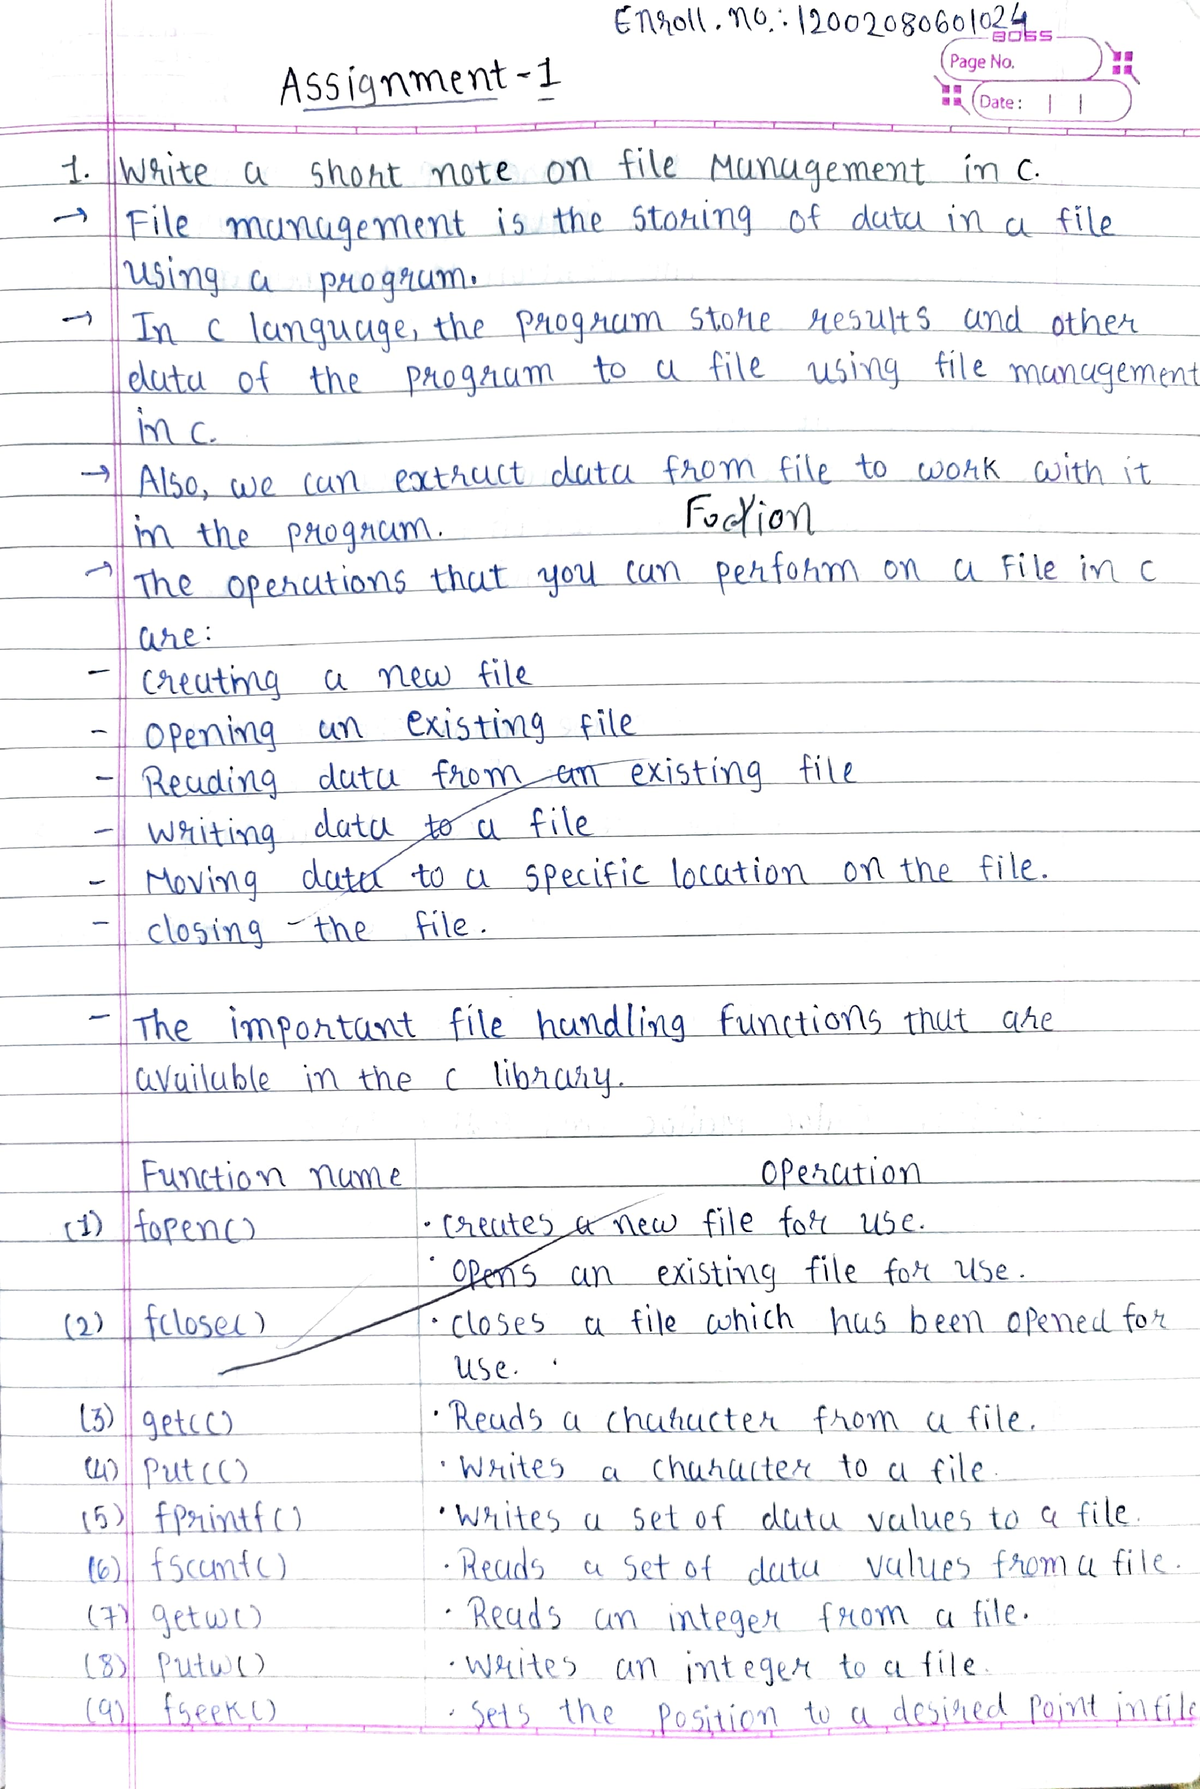 Enroll. no.: 12002080601024
BOSS
Page No.
Date: | |
Assignment-1
1. Write a short note on file Management in c.
→ File management is the storing of data in a file
using a program.
→ In c language, the program store results and other
data of the program to a file using file management
in c.
→ Also, we can extract data from file to work with it
in the program.
→ The operations that you can perform on a File in c
are:
- creating a new file
- opening an existing file
- Reading data from an existing file
- writing data to a file
- Moving data to a specific location on the file.
- closing the file.
- The important file handling functions that are
available in the c library.
Function name operation
(1) fopen() · creates a new file for use.
· opens an existing file for use.
(2) fclose() · closes a file which has been opened for
use.
(3) getc() · Reads a character from a file.
(4) putc() · writes a character to a file.
(5) fprintf() · writes a set of data values to a file.
(6) fscanf() · Reads a set of data values from a file.
(7) getw() · Reads an integer from a file.
(8) putw() · writes an integer to a file.
(9) fseek() · sets the position to a desired point in file